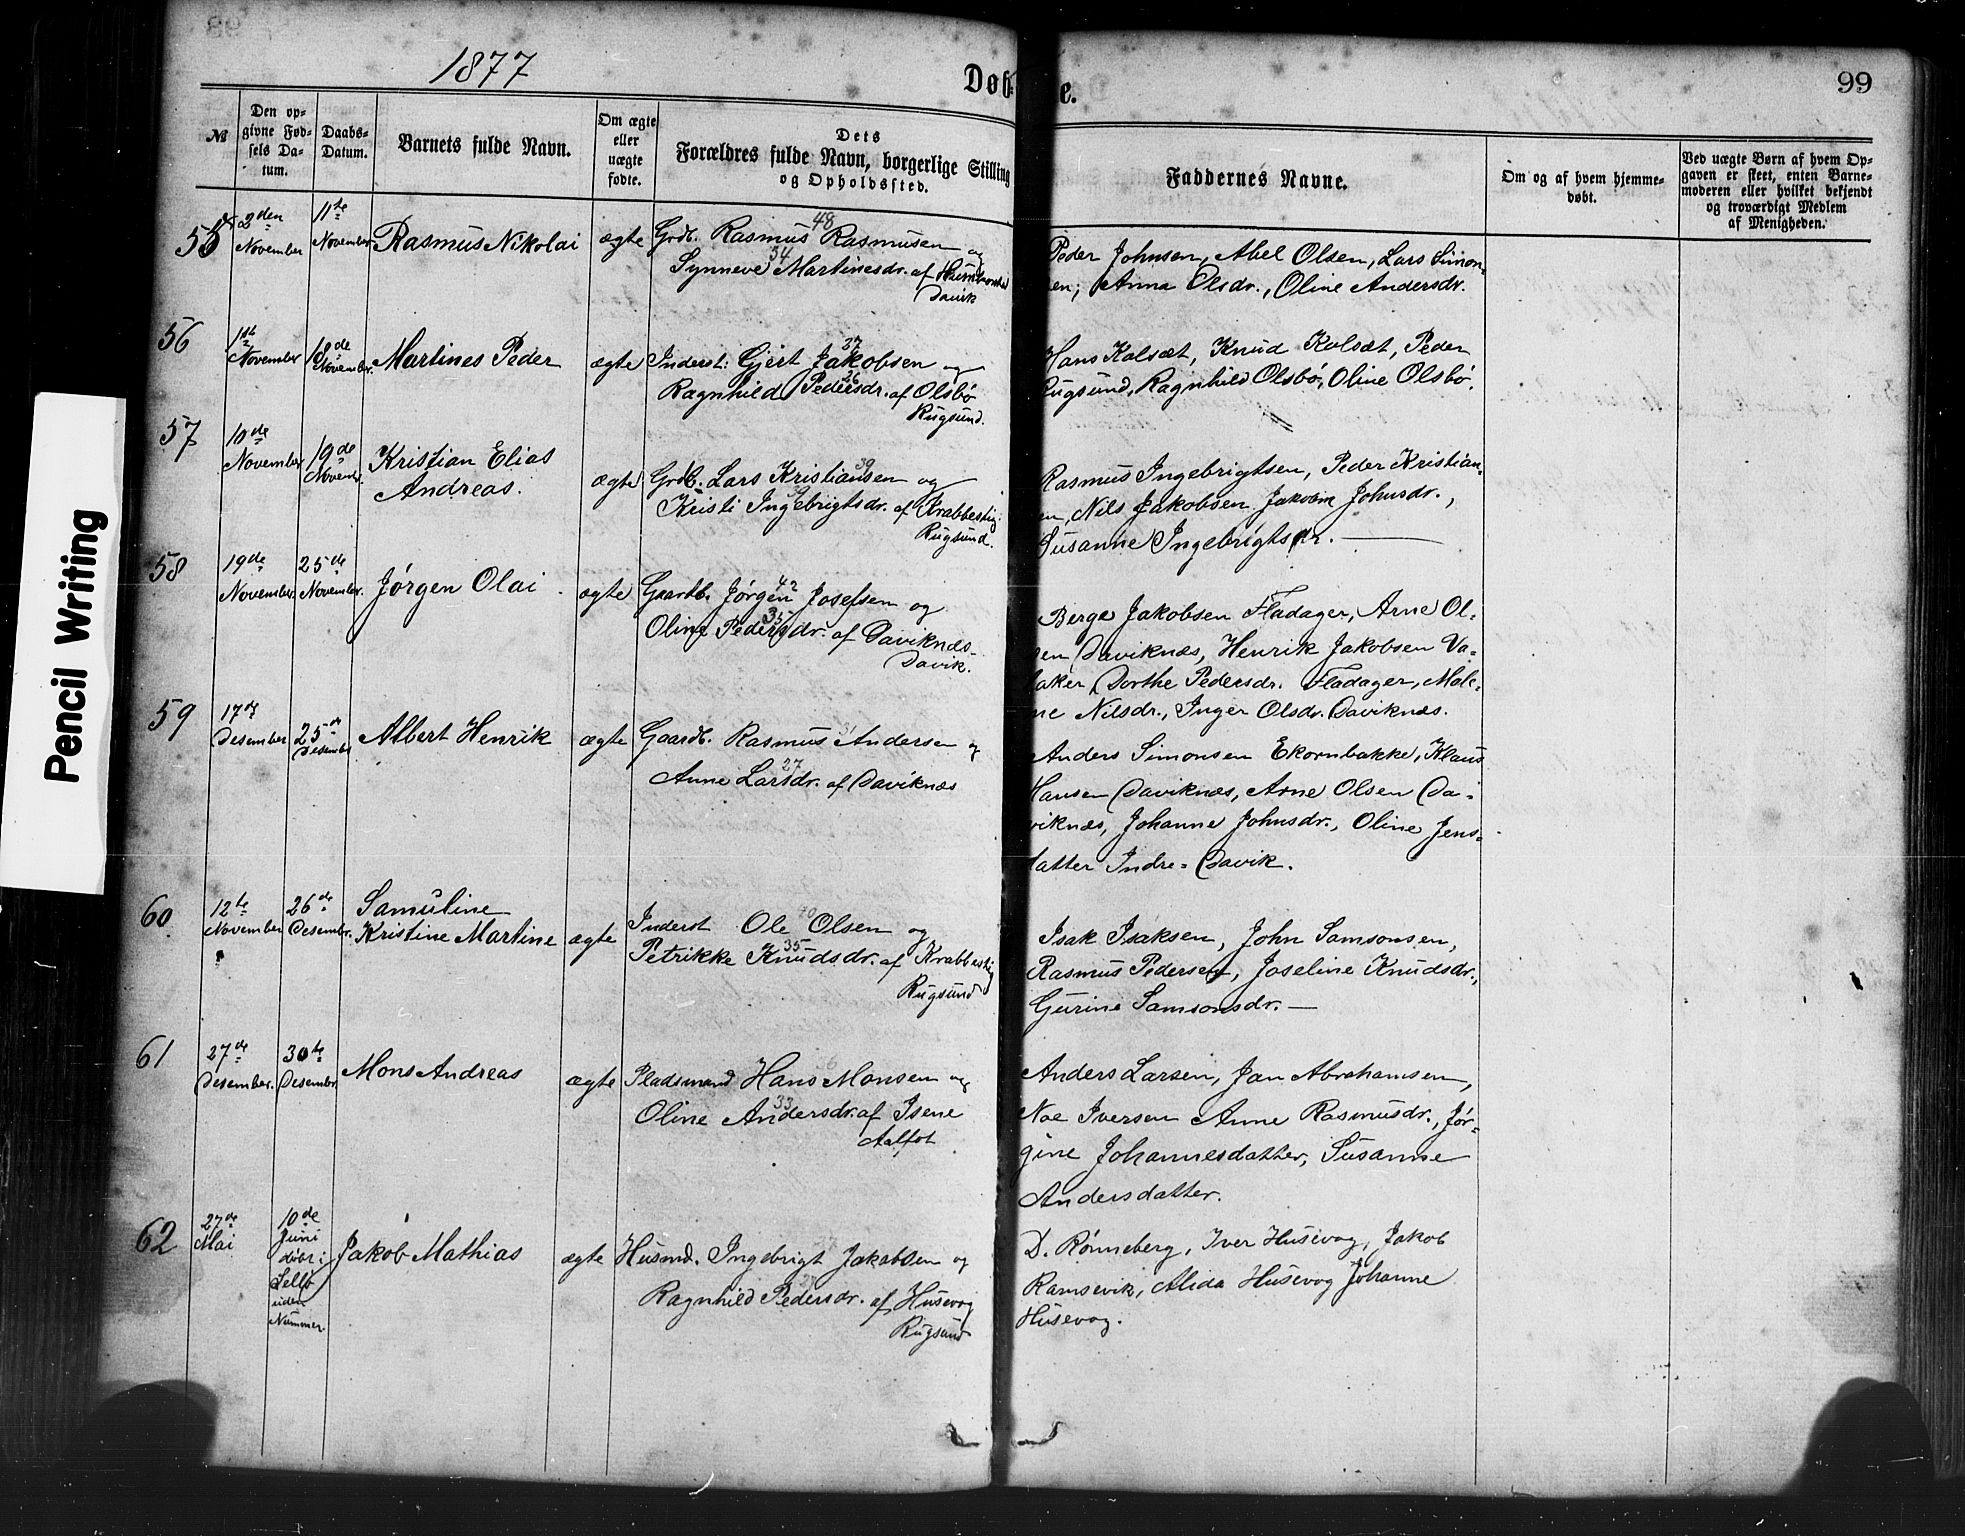 1877
Døb-
te.
99
Pencil Writing
№
Den op-
givne Fød-
sels Da-
tum.
Daabs-
Datum.
Barnets fulde Navn.
Om ægte
eller
uægte
fødte.
Dets
Forældres fulde Navn, borgerlige Stilling
og Opholdssted.
Faddernes Navne.
Om og af hvem hjemme-
døbt.
Ved uægte Børn af hvem Op-
gaven er skeet, enten Barne-
moderen eller hvilket bekjendt
og troværdigt Medlem
af Menigheden.
55
2den
November
11te
November
Rasmus Nikolai
ægte
Grdb. Rasmus Rasmusen og
48
34
Synneve Martinesdr. af
Davik
Peder Johnsen, Abel Olsen, Lars Simon-
sen; Anna Olsdr., Oline Andersdr.
56
1ste
November
18de
November.
Martines Peder
ægte
Inderst: Gjert Jakobsen og
37
26
Ragnhild Pedersdr. af Olsbø
Rugsund.
Hans Kolsæt, Knud Kolsæt, Peder
Rugsund, Ragnhild Olsbø, Oline Olsbø.
57
10de
November
19de
Novembr.
Kristian Elias
Andreas.
ægte
Grdb. Lars Kristiansen og
39
39
Kristi Ingebrigtsdr. af Krabbestig.
Rugsund.
Rasmus Ingebrigtsen, Peder Kristian-
sen, Nils Jakobsen Jakobine Johnsdr.,
Susanne Ingebrigtsdr.
58
19de
November.
25de
November.
Jørgen Olai
ægte
Gaardb. Jørgen Josefsen og
42
35
Oline Pedersdr. af Daviknæs
Davik.
Berge Jakobsen Fladager, Arne Ol-
sen Daviknæs, Henrik Jakobsen Va-
aker, Dorthe Pedersdr. Fladager, Male-
ne Nilsdr., Inger Olsdr. Daviknæs.
59
17de
Desember
25de
Desembr
Albert Henrik
ægte
Gaardb. Rasmus Andersen og
31
27
Anne Larsdr. af Daviknæs
Anders Simonsen Ekornbakke, Klaus
Hansen Daviknæs, Arne Olsen Da-
viknæs, Johanne Johnsdr., Oline Jens-
datter Indre-Davik.
60
12te
November
26de
Desembr.
Samuline
Kristine Martine
ægte
Inderst Ole Olsen og
40
35
Petrikke Knudsdr. af Krabbestig
Rugsund
Isak Isaksen, John Samsonsen,
Rasmus Pedersen, Joseline Knudsdr.,
Gurine Samsonsdr.
61
27de
Desember.
30te
Desembr
Mons Andreas
ægte
Pladsmand Hans Monsen og
33
Oline Andersdr. af Isene
Aalfot
Anders Larsen, Jan Abrahamsen,
Noe Iversen Anne Rasmusdr., Jør-
gine Johannesdatter, Susanne
Andersdatter.
62
27de
Mai
10de
Juni
døbt i
Selle
uden
Nummer.
Jakob Mathias
ægte
Husmd. Ingebrigt Jakobsen og
27
Ragnhild Pedersdr. af Husevog
Rugsund
D. Rønneberg, Iver Husevog, Jakob
Ramsevik, Alida Husevog Johanne
Husevog.